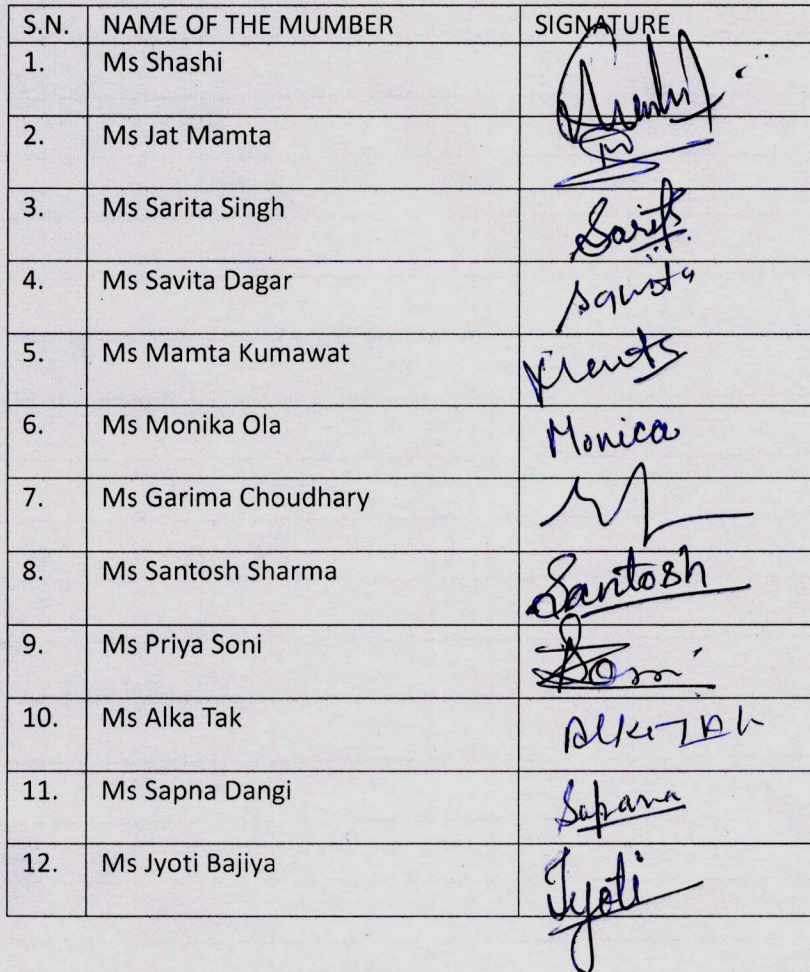 S.N. NAME OF THE MUMBER SIGNATURE
1. Ms Shashi
2. Ms Jat Mamta
3. Ms Sarita Singh
4. Ms Savita Dagar
5. Ms Mamta Kumawat
6. Ms Monika Ola Monica
7. Ms Garima Choudhary
8. Ms Santosh Sharma Santosh
9. Ms Priya Soni Soni
10. Ms Alka Tak
11. Ms Sapna Dangi Sapana
12. Ms Jyoti Bajiya Jyoti